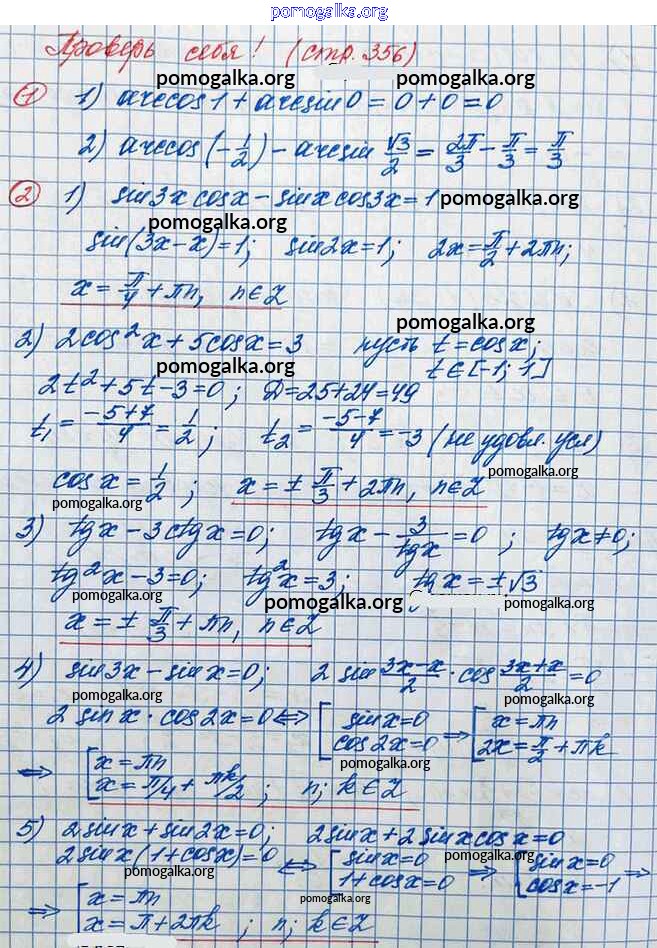 pomogalka.org
Проверь себя! (стр. 356)
pomogalka.org pomogalka.org
① 1) arccos1 + arcsin0 = 0 + 0 = 0
2) arccos(-1/2) - arcsin √3/2 = 2π/3 - π/3 = π/3
② 1) sin3x cosx - sinx cos3x = 1 pomogalka.org
pomogalka.org
sin(3x-x)=1; sin2x=1; 2x=π/2+2πn;
x = π/4 + πn, n∈Z
pomogalka.org
2) 2cos²x + 5cosx = 3 пусть t = cosx;
pomogalka.org t∈[-1; 1]
2t²+5t-3=0; D=25+24=49
t₁ = (-5+7)/4 = 1/2; t₂ = (-5-7)/4 = -3 (не удовл. усл)
pomogalka.org
cosx = 1/2; x = ± π/3 + 2πn, n∈Z
pomogalka.org pomogalka.org
3) tgx - 3ctgx = 0; tgx - 3/tgx = 0; tgx≠0;
tg²x-3=0; tg²x=3; tgx=±√3
pomogalka.org pomogalka.org
pomogalka.org
x = ± π/3 + πn, n∈Z
4) sin3x - sinx=0; 2 sin (3x-x)/2 · cos (3x+x)/2 = 0
pomogalka.org pomogalka.org
2 sinx · cos2x = 0 ⟺ [sinx=0 cos2x=0 ⟹ [x=πn 2x=π/2+πk
pomogalka.org
⟹ [x=πn
x=π/4+πk/2; n; k∈Z
pomogalka.org pomogalka.org
5) 2sinx + sin2x=0; 2sinx+2sinxcosx=0
pomogalka.org
2sinx(1+cosx)=0 ⟺ [sinx=0 1+cosx=0 ⟹ [sinx=0 cosx=-1 ⟹
pomogalka.org pomogalka.org
pomogalka.org
⟹ [x=πn
x=π+2πk; n; k∈Z